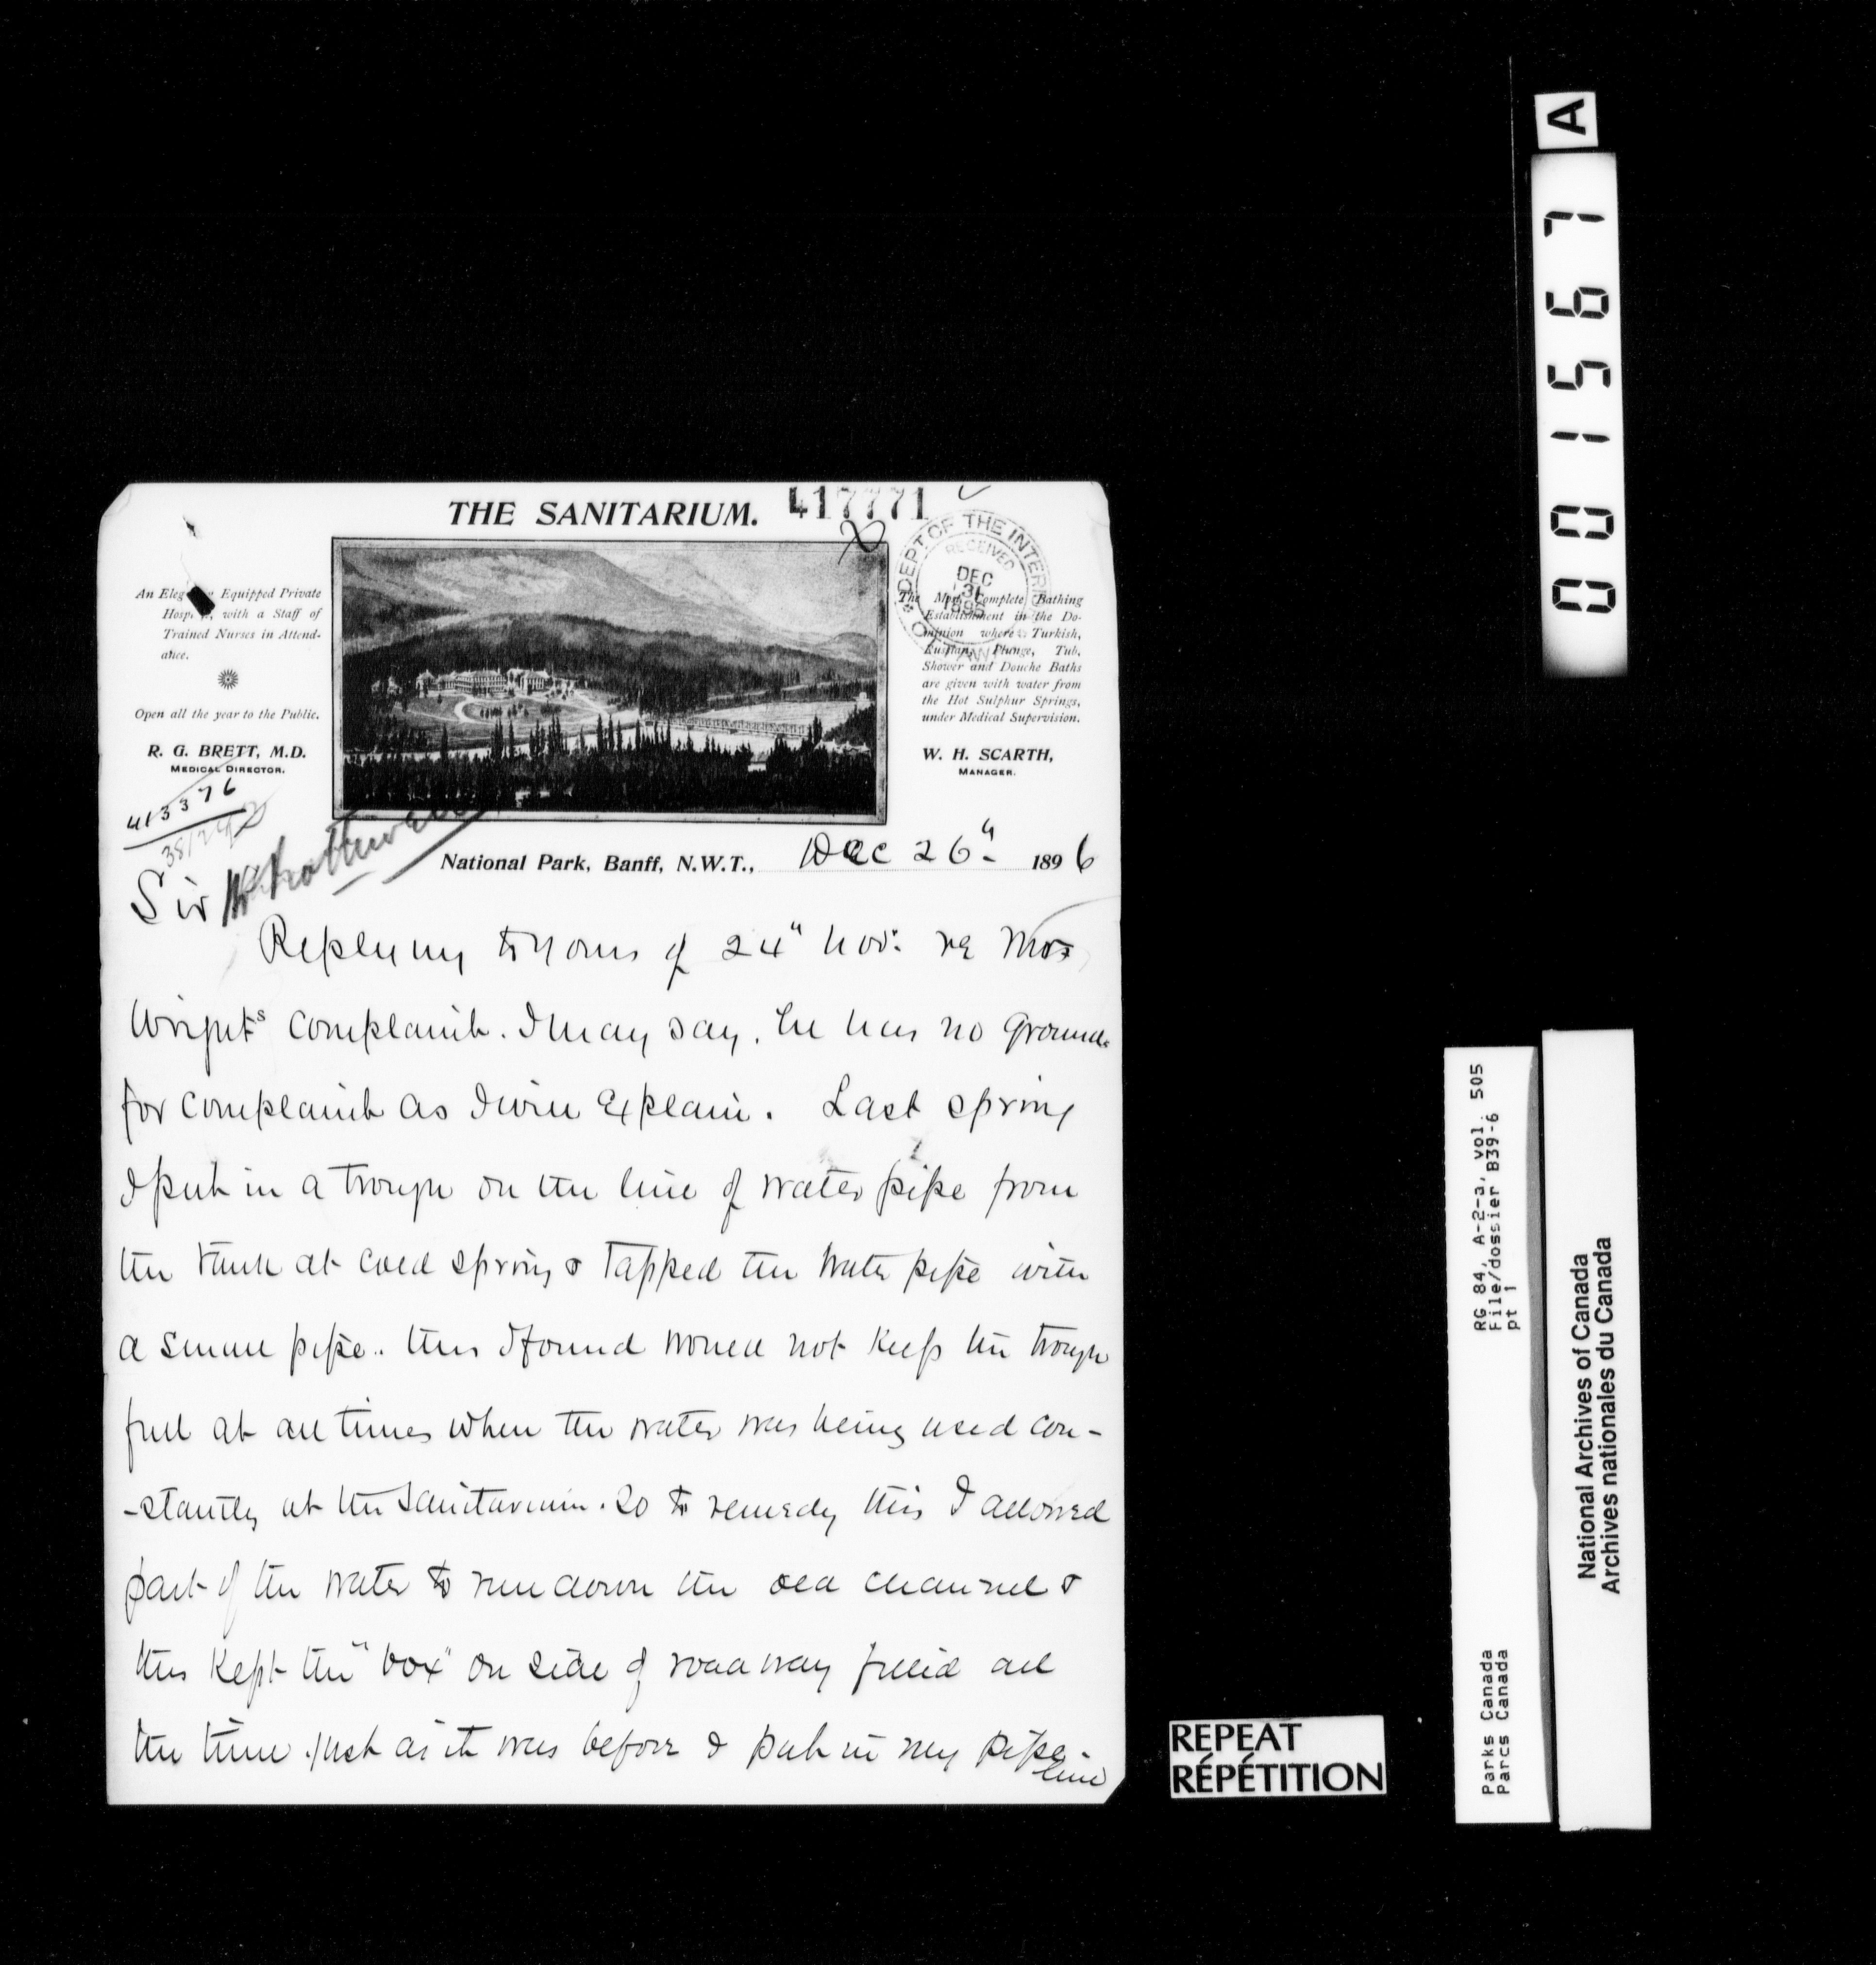 THE SANITARIUM.
417771
DEPT. OF THE INTERIOR
RECEIVED
DEC
31
1896
OTTAWA
An Elegantly Equipped Private
Hospital, with a Staff of
Trained Nurses in Attend-
ance.
Open all the year to the Public.
R. G. BRETT, M.D.
MEDICAL DIRECTOR.
The Most Complete Bathing
Establishment in the Do-
minion where Turkish,
Russian, Plunge, Tub,
Shower and Douche Baths
are given with water from
the Hot Sulphur Springs,
under Medical Supervision.
W. H. SCARTH,
MANAGER.
413376
National Park, Banff, N.W.T., Dec 26th 1896
Sir
Replying to yours of 24" Nov: re Mrs
Wright's complaint. I may say, he has no grounds
for complaint as I will explain. Last spring
I put in a trough on the line of water pipe from
the tank at cold spring & tapped the water pipe with
a small pipe.. this I found would not keep the trough
full at all times when the water was being used con-
-stantly at the Sanitarium. So to remedy this I allowed
part of the water to run down the old channel &
this kept the "box" on side of roadway filled all
the time just as it was before I put in my pipe-
line
A
001567
RG 84, A-2-a, vol. 505
File/dossier B39-6
pt 1
Parks Canada
Parcs Canada
National Archives of Canada
Archives nationales du Canada
REPEAT
RÉPÉTITION